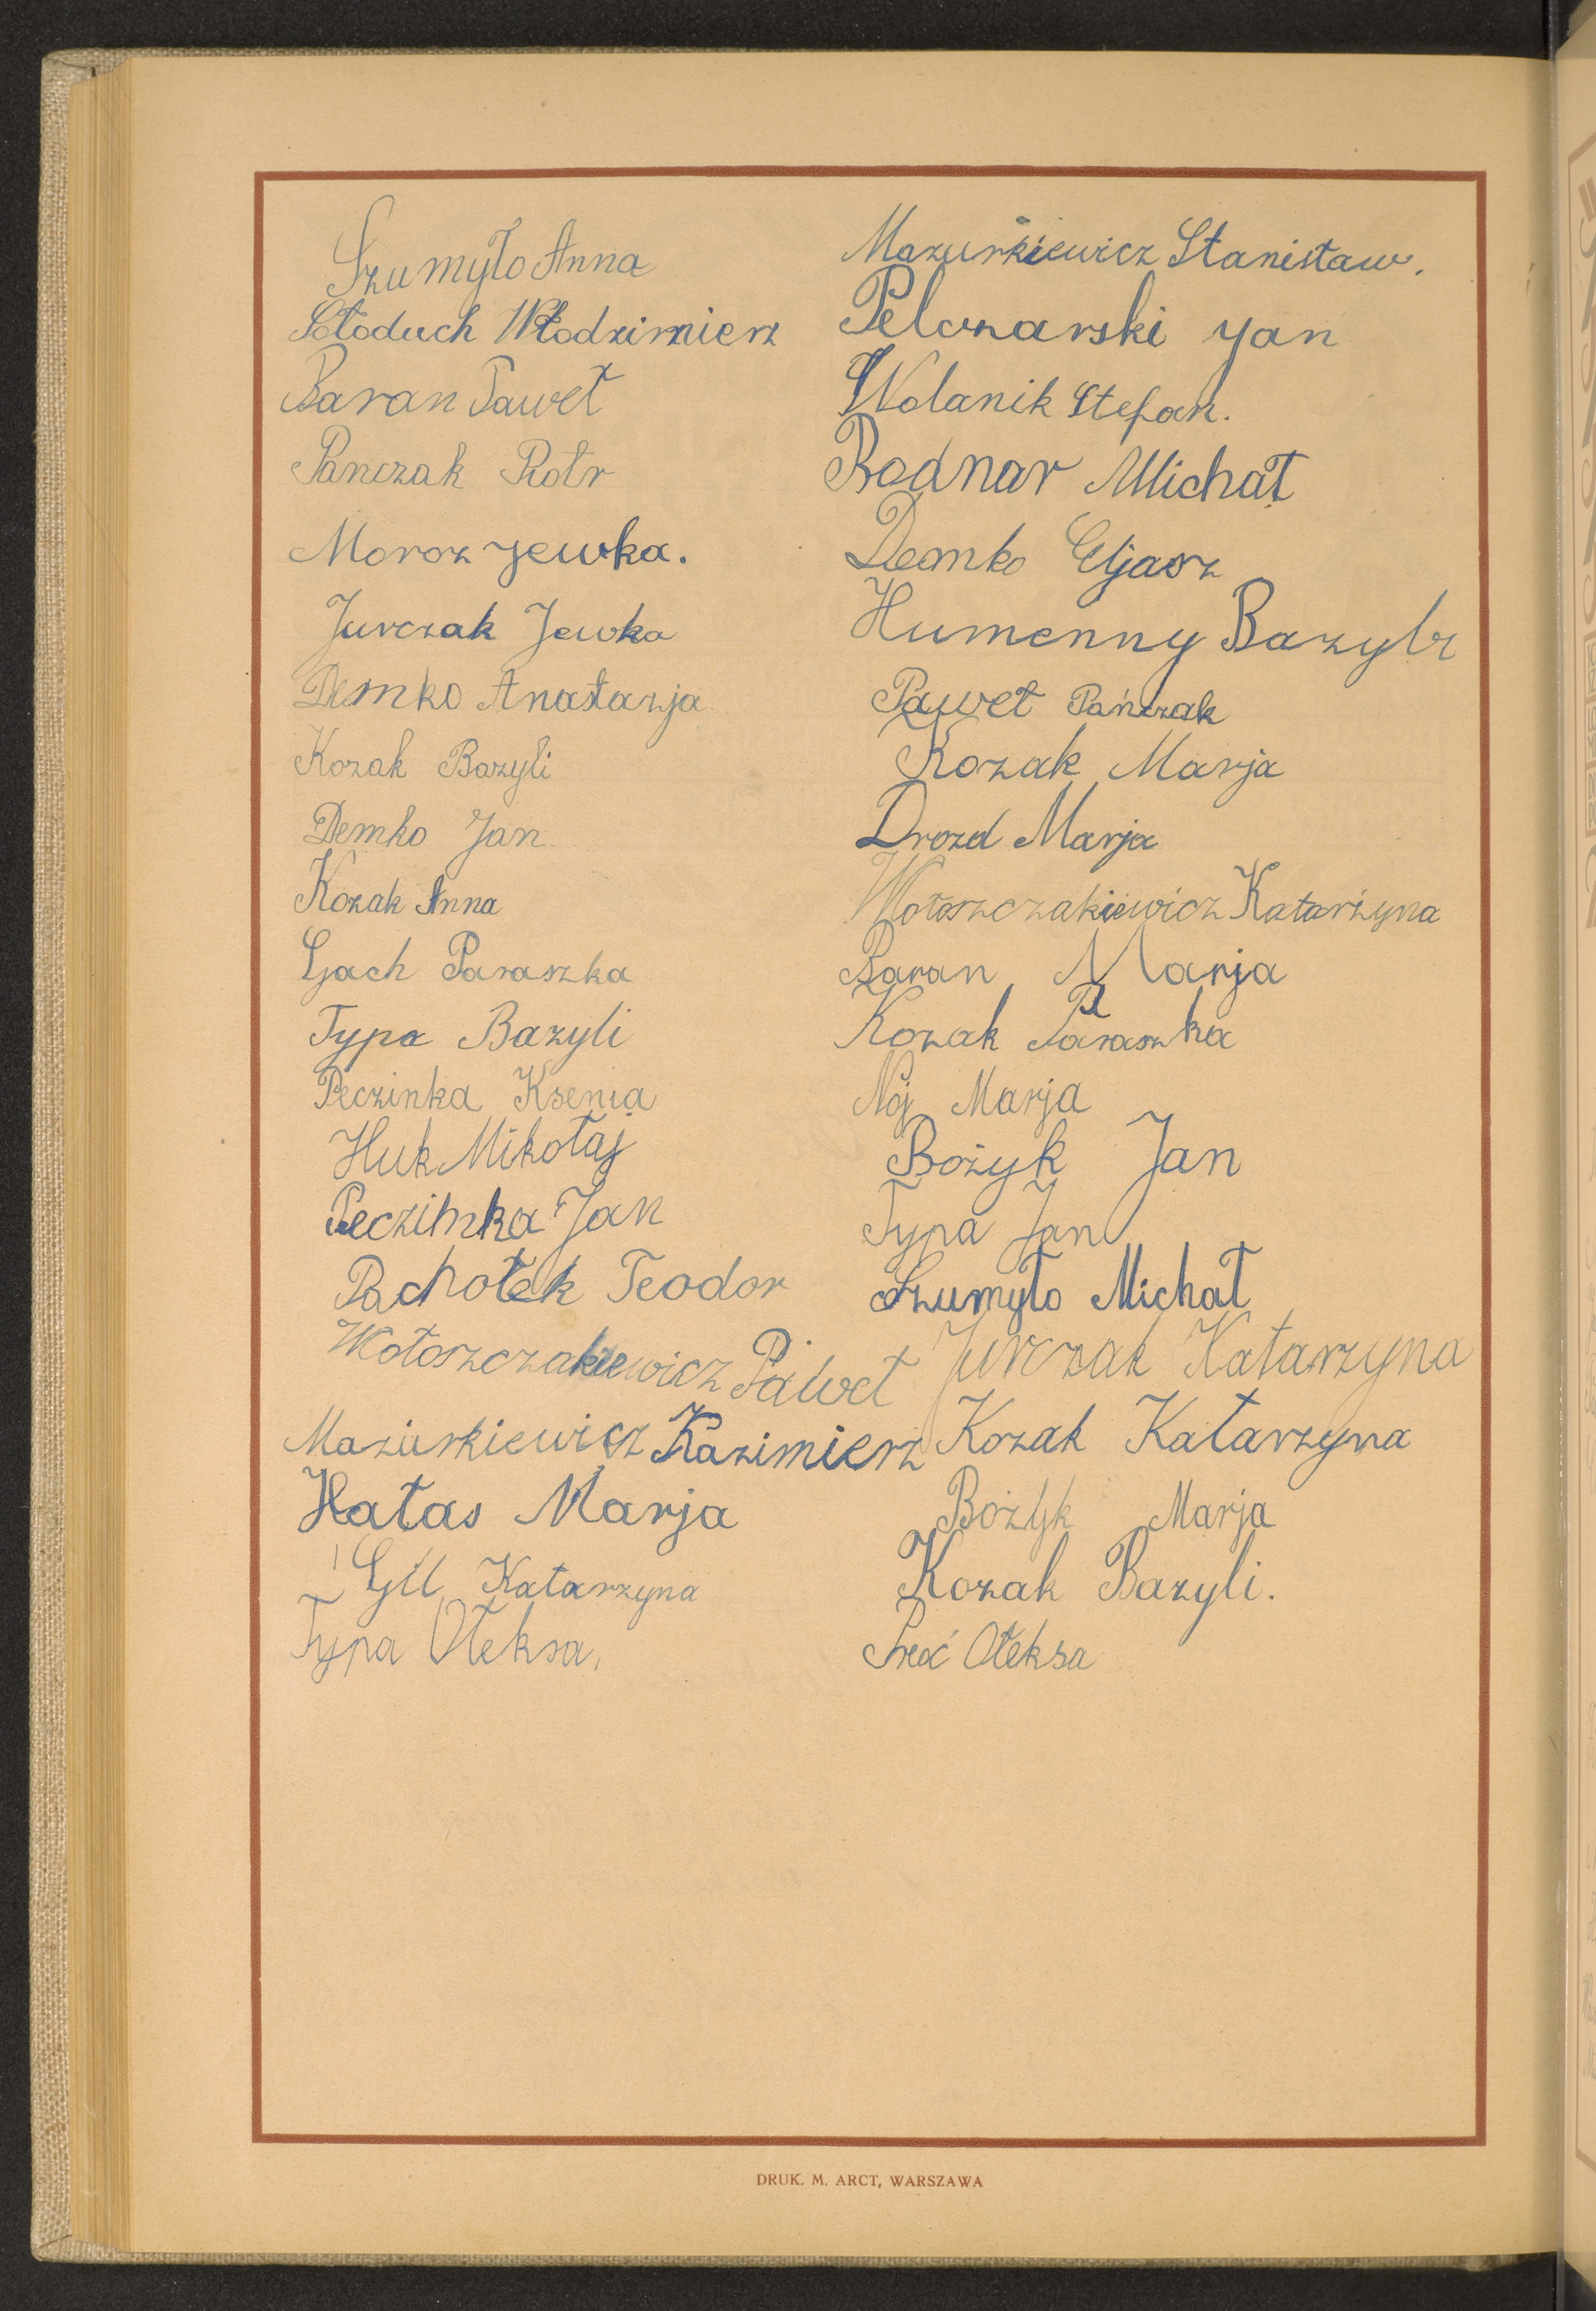 Szumyło Anna
Sołoduch Włodzimierz
Baran Paweł
Panczak Piotr
Moroz Jewka.
Jurczak Jewka
Demko Anastazja
Kozak Bazyli
Demko Jan
Kozak Anna
Gach Paraszka
Typa Bazyli
Peczinka Ksenia
Huk Mikołaj
Peczinka Jan
Pachołek Teodor
Wołoszczakiewicz Paweł
Mazurkiewicz Kazimierz
Hałas Marja
Gil Katarzyna
Typa Ołeksa,
Mazurkiewicz Stanisław.
Pelczarski Jan
Wolanik Stefan.
Bodnar Michał
Demko Eljasz
Humenny Bazyli
Paweł Pańczak
Kozak Marja
Drozd Marja
Wołoszczakiewicz Katarzyna
Baran Marja
Kozak Paraszka
Noj Marja
Bożyk Jan
Typa Jan
Szumyło Michał
Jurczak Katarzyna
Kozak Katarzyna
Bożyk Marja
Kozak Bazyli.
Ołeksa
DRUK. M. ARCT, WARSZAWA